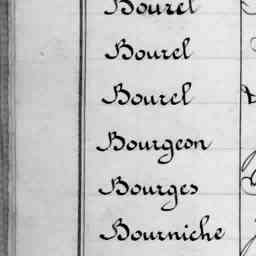 Bourel
Bourel
Bourel
Bourgeon
Bourges
Bourniche